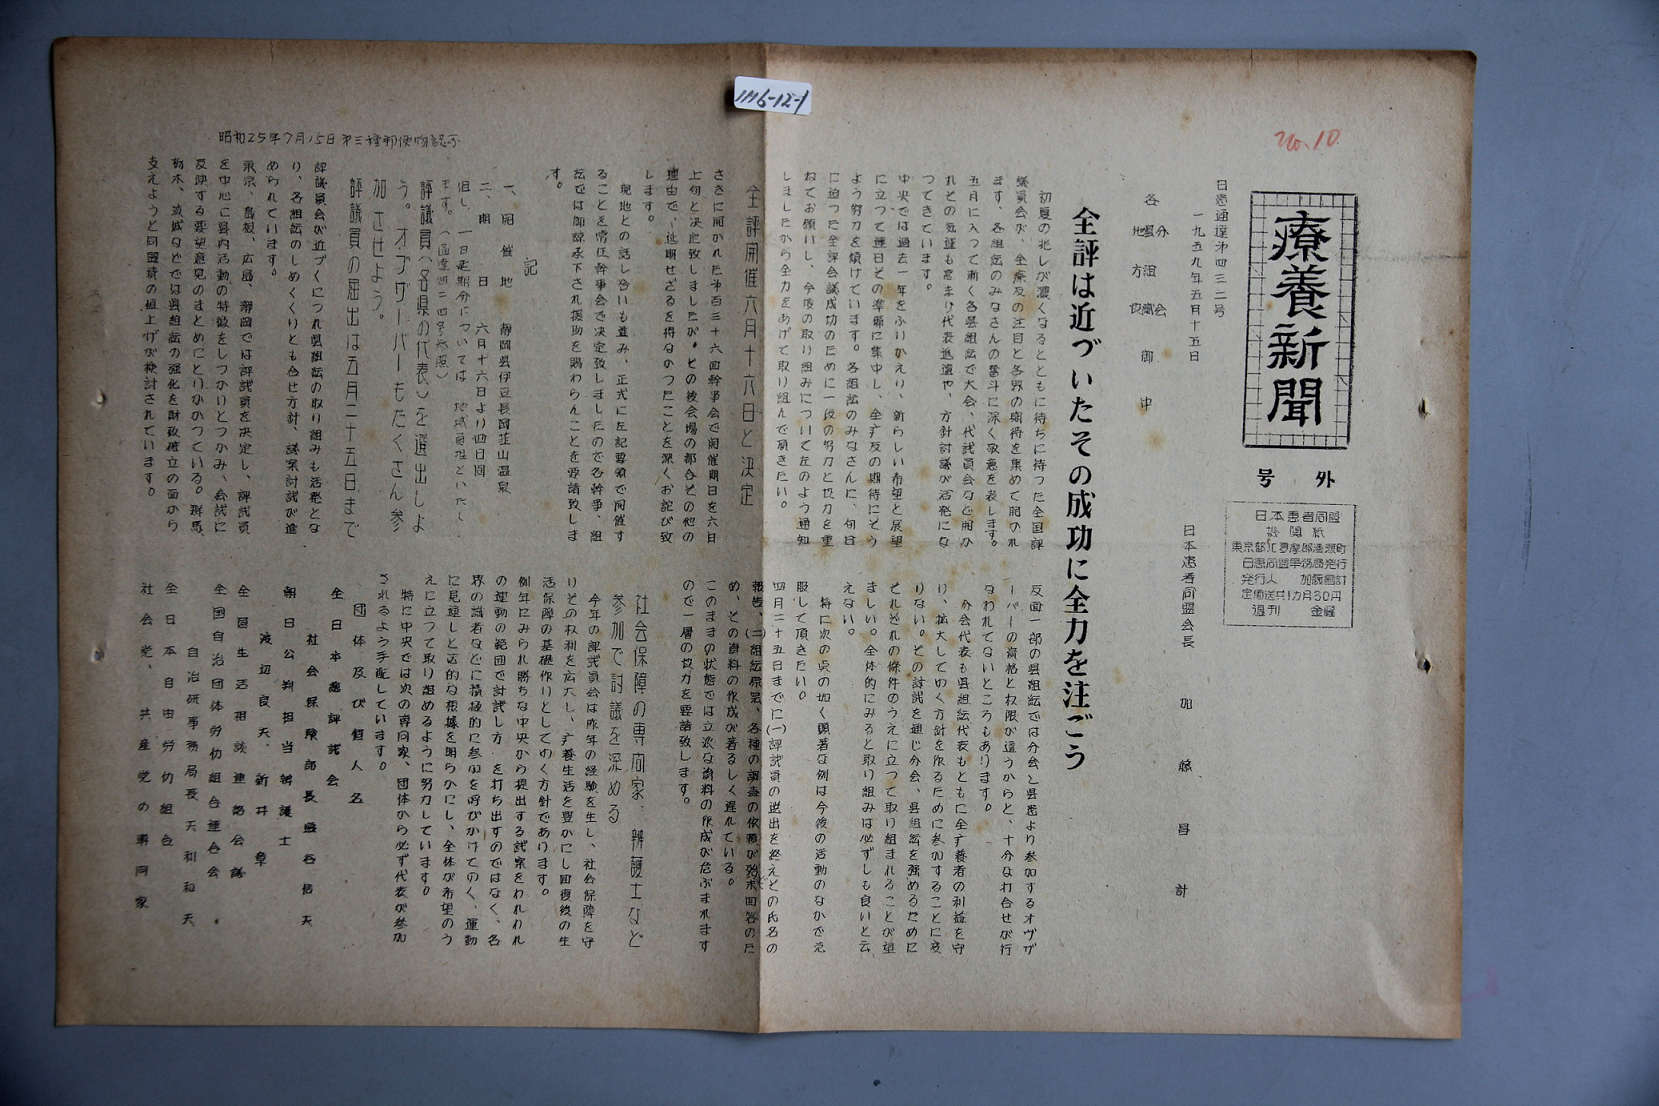 IM6-12-1
No.10
昭和25年7月15日第三種郵便物認可
療養新聞
号外
日本患者同盟
機関紙
東京都北多摩郡清瀬町
日患同盟事務局発行
発行人 加藤昌計
定価送共1カ月30円
週刊 金曜
日患通達第四三二号
一九五九年五月十五日
各
御中
日本患者同盟会長 加藤昌計
全評は近づいたその成功に全力を注ごう
初夏の兆しが濃くなるとともに待ちに待った全国評
議員会が、全療友の注目と各界の期待を集めて開かれ
ます。各組絋のみなさんの奮斗に深く敬意を表します。
五月に入つて漸く各県組絋で大会、代議員会など開か
れその気運も高まり代表選遣や、方針討議が活発にな
つてきています。
中央では過去一年をふりかえり、新らしい希望と展望
に立つて連日その準備に集中し、全疒友の期待にそう
よう努力を傾けています。各組絋のみなさんに、旬日
に迫つた全評会議成功のために一段の努力と協力を重
ねてお願いし、今后の取り組みについて左のよう通知
しましたから全力をあげて取り組んで頂きたい。
全評開催六月十六日と決定
さきに開かれた第百三十六回幹事会で開催期日を六日
上旬と決定致しましたが、その後会場の都合その他の
理由で、延期せざるを得なかつたことを深くお詫び致
します。
現地との話し合いも進み、正式に左記要領で開催す
ることを常任幹事会で決定致しましたので各幹事、組
絋では御諒承下され援助を賜わらんことを要請致しま
す。
記
一、開催地 静岡県伊豆長岡韮山温泉
二、期日 六月十六日より四日間
但し、一日延期分については 地域負担といたし
ます。(通達四二四号参照)
評議員(各県の代表)を選出しよ
う。オブザーバーもたくさん参
加させよう。
評議員の届出は五月二十五日まで
評議員会が近づくにつれ県組絋の取り組みも活発とな
り、各組絋のしめくくりとも合せ方針、議案討議が進
められています。
東京、島根、広島、静岡では評議員を決定し、評議員
を中心に県内活動の特徴をしつかりとつかみ、会議に
反映する要望意見のまとめにとりかかつている。群馬、
栃木、茨城などでは県組絋の強化を財政確立の面から
支えようと同盟費の値上げが検討されています。
反面一部の県組絋では分会と県患より参加するオヴザ
ーバーの資格と权限が違うからと、十分な打合せが行
なわれてないところもあります。
分会代表も県組絋代表もともに全疒養者の利益を守
り、拡大してゆく方針を作るために参加することに変
りない。その討議を通じ分会、県組絋を強めるために
それぞれの條件のうえに立つて取り組まれることが望
ましい。全体的にみると取り組みは必ずしも良いと云
えない。
特に次の点の如く顕著な例は今後の活動のなかで克
服して頂きたい。
四月二十五日までに(一)評議員の選出を終えその氏名の
報告、(二)組絋原案、各種の調査の依頼が殆ど未回答のた
め、その資料の作成が著るしく遅れている。
このままの状態では立派な資料の作成が危ぶまれます
ので一層の協力を要請致します。
社会保障の専門家、辨護士など
参加で討議を深める
今年の評議員会は昨年の経験を生し、社会保障を守
りその权利を広大し、疒養生活を豊かにし回復後の生
活保障の基礎作りとしてゆく方針であります。
例年にみられ勝ちな中央から提出する議案をわれわれ
の運動の範囲で討議し方 を打ち出すのではなく、各
界の識者などに積極的に参加を呼びかけてゆく、運動
に見通しと法的な根據を明らかにし、全体が希望のう
えに立つて取り組めるように努力しています。
特に中央では次の専門家、団体から必ず代表が参加
されるよう手配しています。
団体及び個人名
全日本患評議会
社会保険部長 盛谷信天
朝日公判担当辨護士
渡辺良夫、新井章
全国生活相談連絡会議
全国自治団体労仂組合連合会、
自治研事務局長 天利和夫
全日本自由労仂組合
社会党、共産党の専門家